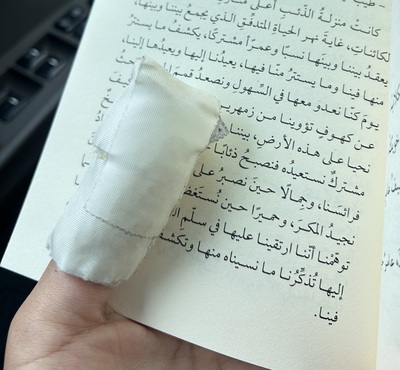 كانت منزلة الذئب أعلى
الكائناتِ، غايةَ نهرِ الحياةِ المتدفّقِ الذي يجمعُ بيننا وبينها،
يعقدُ بيننا وبينها نسبًا وعمرًا مشتركًا، يكشفُ ما يستترُ
منها فينا وما يستترُ منّا فيها، يعيدُنا إليها ويعيدُها إلينا،
يومَ كنّا نعدو معها في السّهولِ ونصعدُ
عن كهوفٍ تؤوينا من زمهريرِ
نحيا على هذه الأرضِ، بيننا
مشتركٌ نستعيدُه فنصبحُ ذئابًا
فرائسَنا، وجِمالًا حينَ نصبرُ على
نجيدُ المكرَ، وحميرًا حينَ
توهّمنا أنّنا ارتقينا عليها في سلّمِ
إليها تُذكّرُنا ما نسيناه منها وتكشفُ
فينا.